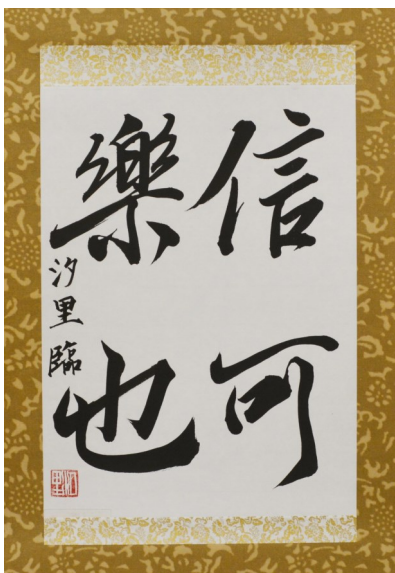 信可
樂也
汐里臨